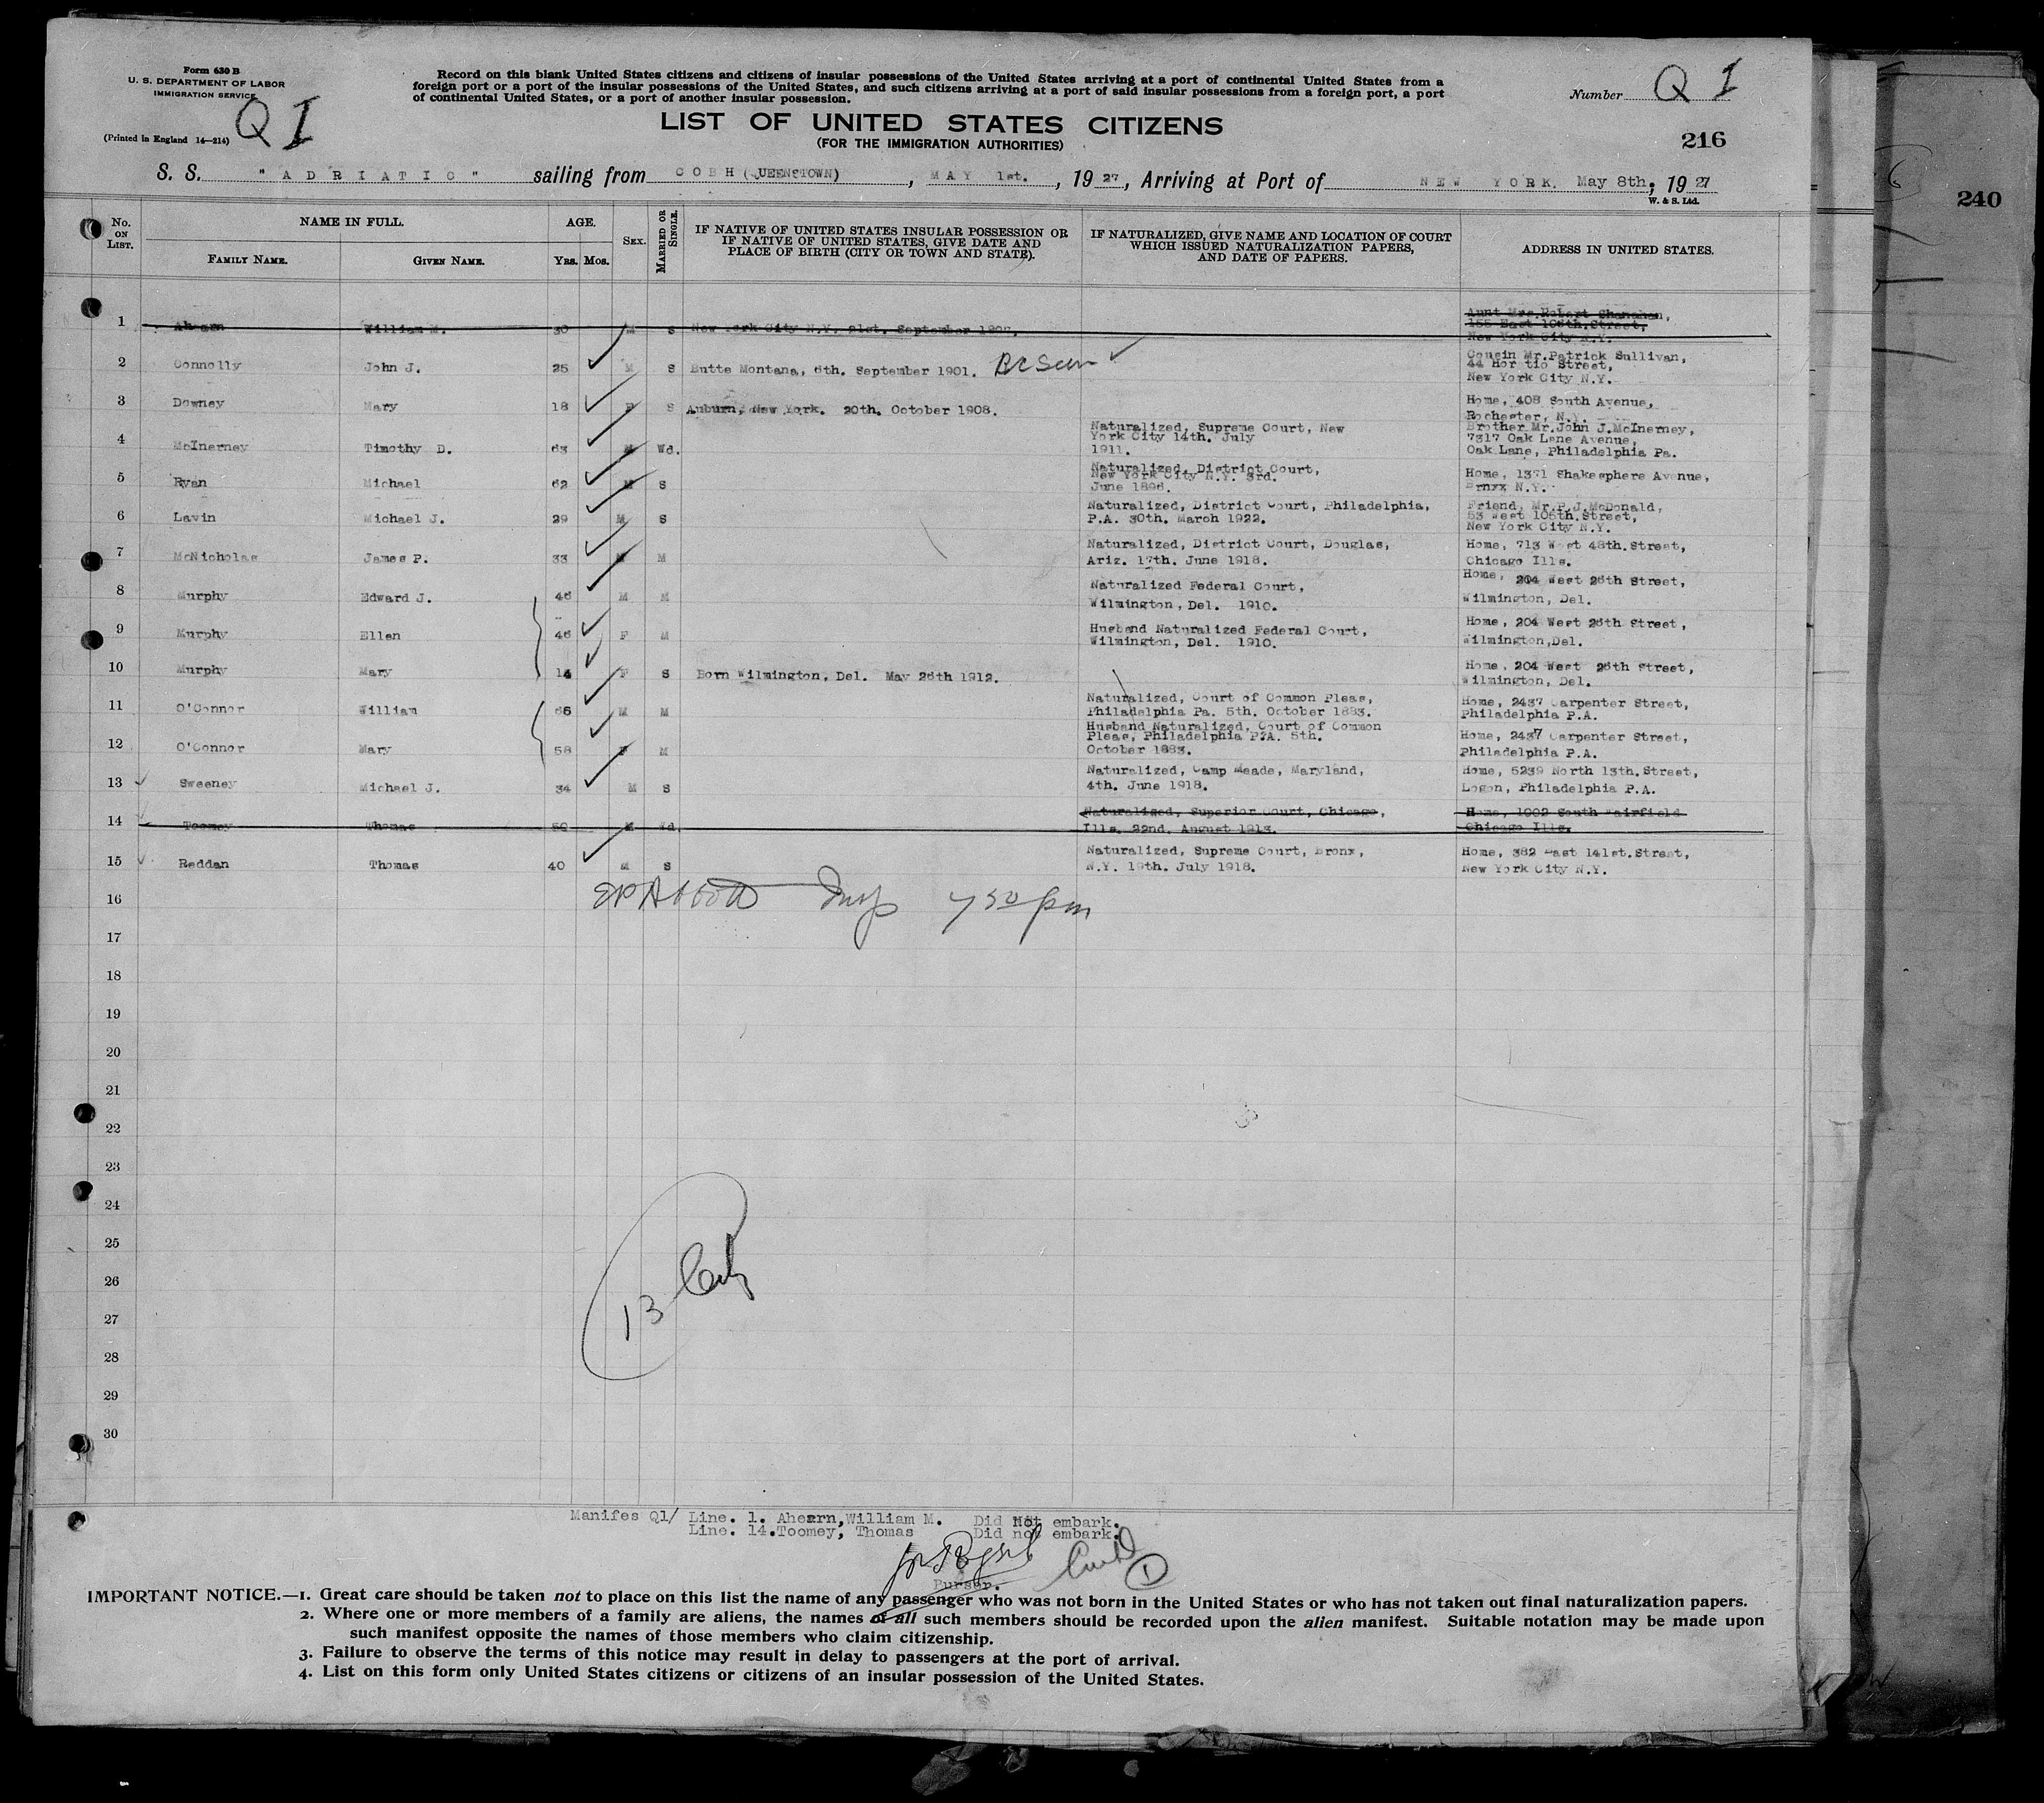 Form 630 B
U. S. DEPARTMENT OF LABOR
IMMIGRATION SERVICE
Q I
(Printed in England 14—214)
Record on this blank United States citizens and citizens of insular possessions of the United States arriving at a port of continental United States from a
foreign port or a port of the insular possessions of the United States, and such citizens arriving at a port of said insular possessions from a foreign port, a port
of continental United States, or a port of another insular possession.
Number Q I
LIST OF UNITED STATES CITIZENS
(FOR THE IMMIGRATION AUTHORITIES)
216
240
S. S. "ADRIATIC" sailing from COBH (QUEENSTOWN), MAY 1st., 1927, Arriving at Port of NEW YORK. May 8th, 1927
W. & S. Ltd.
No. ON LIST.
NAME IN FULL.
FAMILY NAME.
GIVEN NAME.
AGE.
YRS. MOS.
SEX.
MARRIED OR SINGLE.
IF NATIVE OF UNITED STATES INSULAR POSSESSION OR
IF NATIVE OF UNITED STATES, GIVE DATE AND
PLACE OF BIRTH (CITY OR TOWN AND STATE).
IF NATURALIZED, GIVE NAME AND LOCATION OF COURT
WHICH ISSUED NATURALIZATION PAPERS,
AND DATE OF PAPERS.
ADDRESS IN UNITED STATES.
1 Ahearn William M. 30 M S New York City N.Y. 21st. September
Aunt Mrs. Robert Shanahan,
155 East 106th. Street,
New York City N.Y.
2 Connolly John J. 25 M S Butte Montana, 6th. September 1901. BC Seen
Cousin Mr. Patrick Sullivan,
44 Hor tio Street,
New York City N.Y.
3 Downey Mary 18 F S Auburn, New York. 20th. October 1908.
Home, 408 South Avenue,
Rochester, N.Y.
4 McInerney Timothy D. 63 M Wd.
Naturalized, Supreme Court, New
York City 14th. July
1911.
Brother Mr. John J. McInerney,
7317 Oak Lane Avenue,
Oak Lane, Philadelphia Pa.
5 Ryan Michael 62 M S
Naturalized, District Court,
New York City N.Y. 3rd.
June 1896.
Home, 1371 Shakesphere Avenue,
Brnxx N.Y.
6 Lavin Michael J. 29 M S
Naturalized, District Court, Philadelphia,
P.A. 30th. March 1922.
Friend, Mr. P.J. McDonald,
63 West 106th. Street,
New York City N.Y.
7 McNicholas James P. 33 M M
Naturalized, District Court, Douglas,
Ariz. 17th. June 1918.
Home, 713 West 48th. Street,
Chicago Ills.
8 Murphy Edward J. 46 M M
Naturalized Federal Court,
Wilmington, Del. 1910.
Home, 204 West 26th Street,
Wilmington, Del.
9 Murphy Ellen 46 F M
Husband Naturalized Federal Court,
Wilmington, Del. 1910.
Home, 204 West 26th Street,
Wilmington, Del.
10 Murphy Mary 14 F S Born Wilmington, Del. May 26th 1912.
Home, 204 West 26th Street,
Wilmington, Del.
11 O'Connor William 66 M M
Naturalized, Court of Common Pleas,
Philadelphia Pa. 5th. October 1883.
Home, 2437 Carpenter Street,
Philadelphia P.A.
12 O'Connor Mary 58 F M
Husband Naturalized, Court of Common
Pleas, Philadelphia P.A. 5th.
October 1883.
Home, 2437 Carpenter Street,
Philadelphia P.A.
13 Sweeney Michael J. 34 M S
Naturalized, Camp Meade, Maryland,
4th. June 1918.
Home, 5239 North 13th. Street,
Logon, Philadelphia P.A.
14 Toomey Thomas 50 M Wd.
Naturalized, Superior Court, Chicago,
Ills. 22nd. August 1913.
Home, 1002 South Fairfield
Chicago Ills.
15 Reddan Thomas 40 M S
Naturalized, Supreme Court, Bronx,
N.Y. 19th. July 1918.
Home, 382 East 141st. Street,
New York City N.Y.
16 Insp 7 30 pm
17
18
19
20
21
22
23
24
25
26
27
28
29
30
13
Manifes Q1/ Line. 1. Ahearn, William M. Did Not embark.
Line. 14. Toomey, Thomas Did not embark.
Purser.
IMPORTANT NOTICE.—1. Great care should be taken not to place on this list the name of any passenger who was not born in the United States or who has not taken out final naturalization papers.
2. Where one or more members of a family are aliens, the names of all such members should be recorded upon the alien manifest. Suitable notation may be made upon
such manifest opposite the names of those members who claim citizenship.
3. Failure to observe the terms of this notice may result in delay to passengers at the port of arrival.
4. List on this form only United States citizens or citizens of an insular possession of the United States.